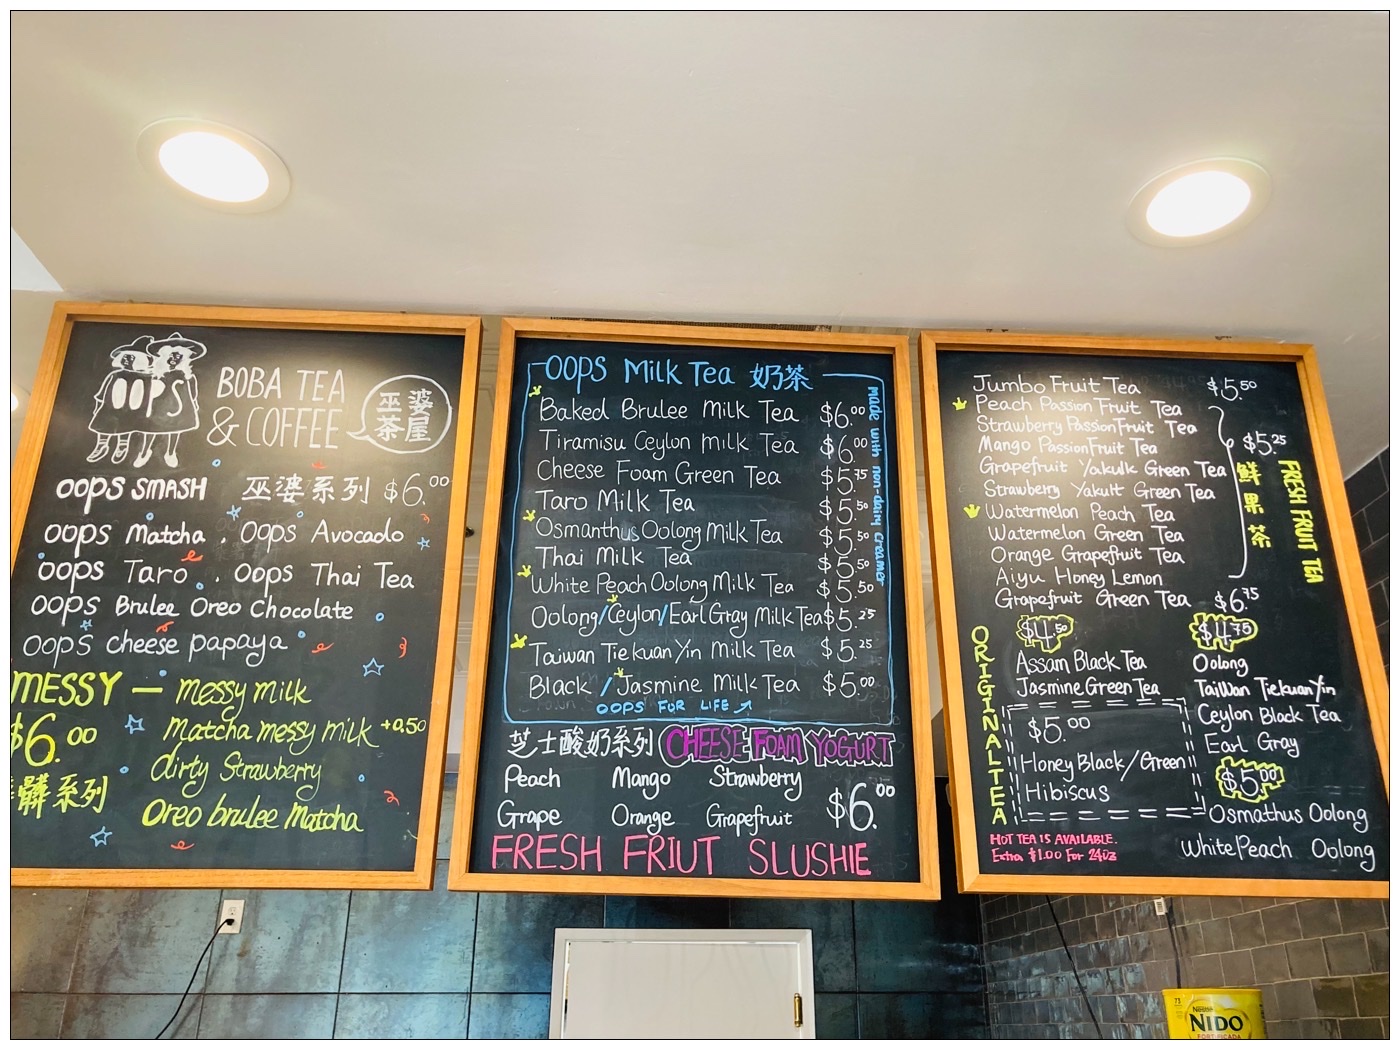 OOPS
BOBA TEA
& COFFEE
巫婆
茶屋
OOPS SMASH 巫婆系列 $6.00
OOPS Matcha . OOPS Avocado
OOPS Taro . OOPS Thai Tea
OOPS Brulee Oreo Chocolate
OOPS cheese papaya
MESSY — Messy Milk
$6.00
Matcha messy milk +0.50
dirty Strawberry
髒系列
Oreo brulee Matcha
OOPS Milk Tea 奶茶
made with non-dairy creamer
Baked Brulee Milk Tea $6.00
Tiramisu Ceylon milk Tea $6.00
Cheese Foam Green Tea $5.75
Taro Milk Tea $5.50
Osmanthus Oolong Milk Tea $5.50
Thai Milk Tea $5.50
White Peach Oolong Milk Tea $5.50
Oolong/Ceylon/Earl Gray Milk Tea $5.25
Taiwan Tiekuan Yin Milk Tea $5.25
Black / Jasmine Milk Tea $5.00
OOPS FOR LIFE
芝士酸奶系列 CHEESE FOAM YOGURT
Peach Mango Strawberry
Grape Orange Grapefruit $6.00
FRESH FRIUT SLUSHIE
Jumbo Fruit Tea $5.50
Peach Passion Fruit Tea
Strawberry PassionFruit Tea
Mango PassionFruit Tea
Grapefruit Yakulk Green Tea
Strawberry Yakult Green Tea
Watermelon Peach Tea
Watermelon Green Tea
Orange Grapefruit Tea
Aiyu Honey Lemon
$5.25
鮮果茶
FRESH FRUIT TEA
Grapefruit Green Tea $6.75
ORIGINAL TEA
$4.50
Assam Black Tea
Jasmine Green Tea
$5.00
Honey Black/Green
Hibiscus
$4.75
Oolong
TaiWan TiekuanYin
Ceylon Black Tea
Earl Gray
$5.00
Osmathus Oolong
White Peach Oolong
HOT TEA IS AVAILABLE.
Extra $1.00 For 24oz
Nestle
NIDO
FORTIFICADA